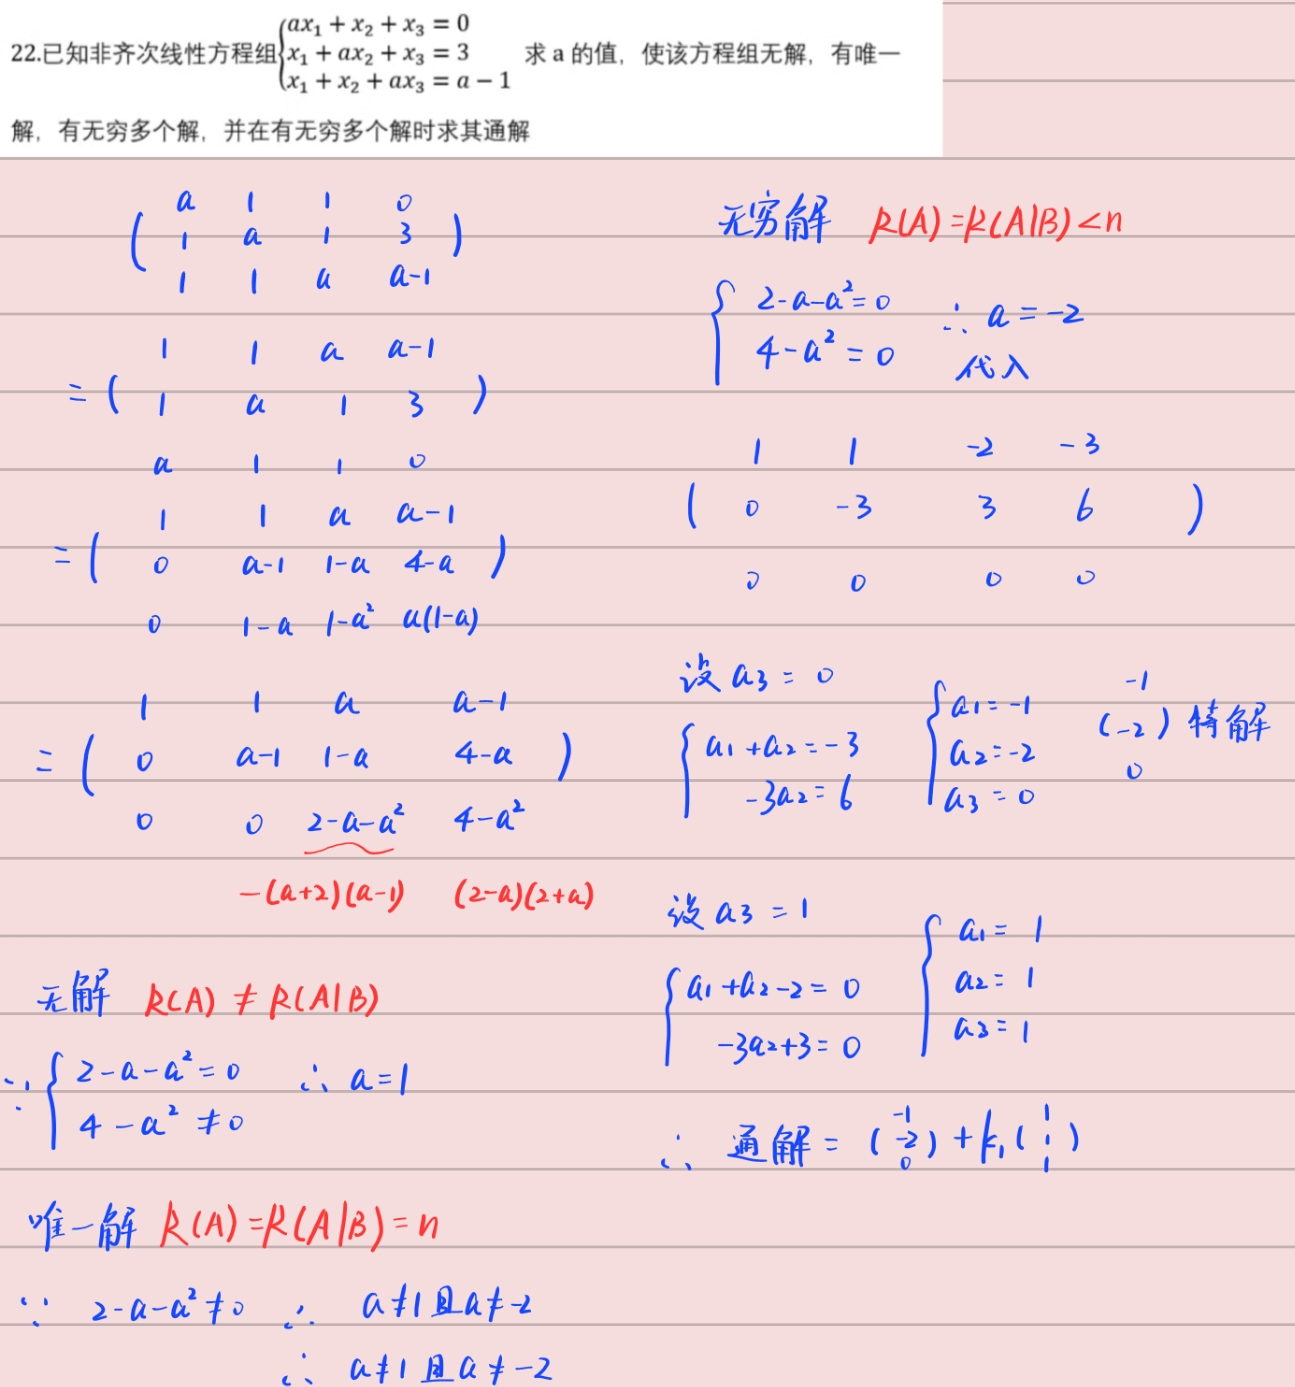 22.已知非齐次线性方程组{ax₁ + x₂ + x₃ = 0
x₁ + ax₂ + x₃ = 3
x₁ + x₂ + ax₃ = a − 1 求 a 的值，使该方程组无解，有唯一
解，有无穷多个解，并在有无穷多个解时求其通解
a 1 1 0
( 1 a 1 3 )
1 1 a a-1
1 1 a a-1
= ( 1 a 1 3 )
a 1 1 0
1 1 a a-1
= ( 0 a-1 1-a 4-a )
0 1-a 1-a² a(1-a)
1 1 a a-1
= ( 0 a-1 1-a 4-a )
0 0 2-a-a² 4-a²
-(a+2)(a-1) (2-a)(2+a)
无解 R(A) ≠ R(A|B)
∵ { 2-a-a² = 0 ∴ a=1
4-a² ≠ 0
唯一解 R(A)=R(A|B)=n
∵ 2-a-a² ≠ 0 ∴ a≠1且a≠-2
∴ a≠1且a≠-2
无穷解 R(A)=R(A|B)<n
{ 2-a-a²=0 ∴ a=-2
4-a²=0 代入
1 1 -2 -3
( 0 -3 3 6 )
0 0 0 0
设 a3 = 0
{ a1+a2=-3
-3a2=6
{ a1=-1
a2=-2
a3=0
-1
(-2) 特解
0
设 a3 = 1
{ a1+a2-2=0
-3a2+3=0
{ a1=1
a2=1
a3=1
-1 1
∴ 通解 = (-2) + k₁( 1 )
0 1